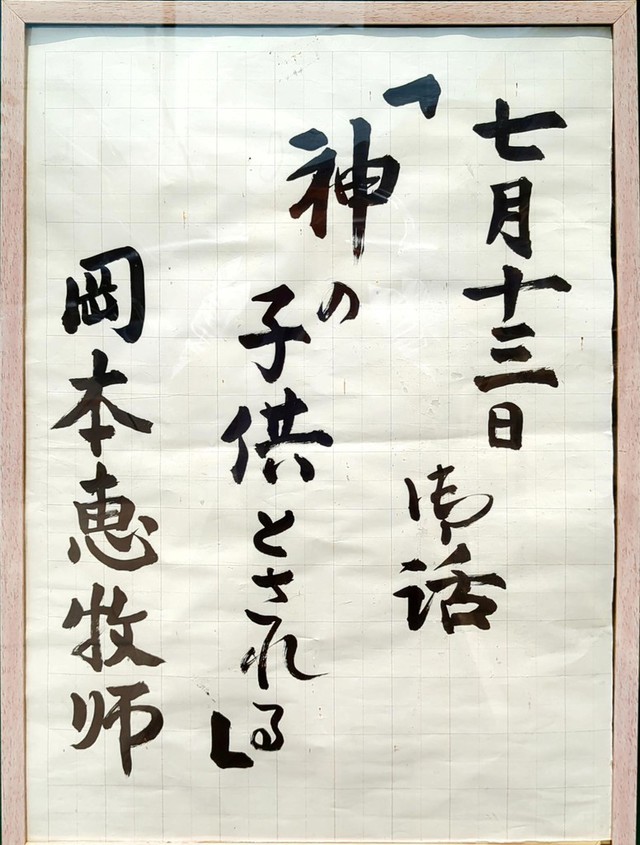 七月十三日
御話
「神の子供とされる」
岡本恵牧师